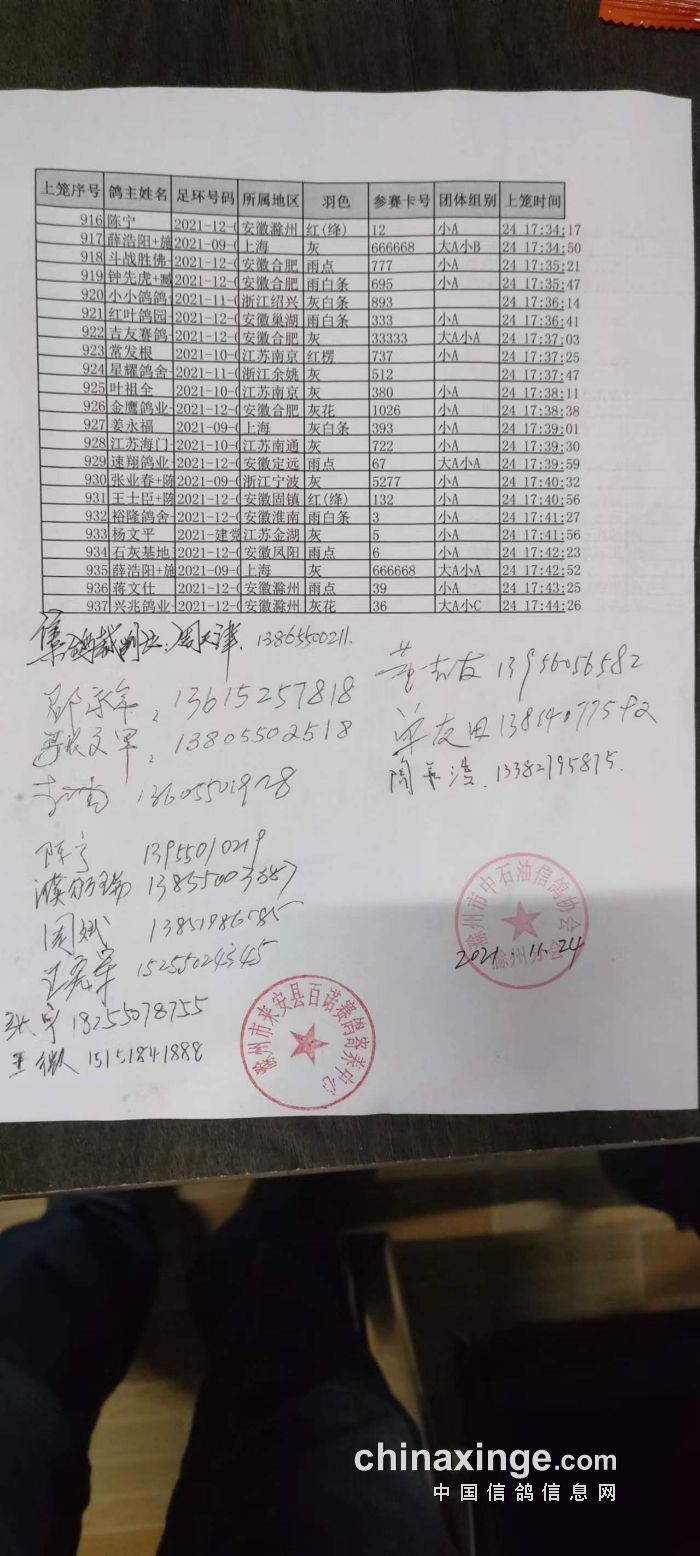 上笼序号 鸽主姓名 足环号码 所属地区 羽色 参赛卡号 团体组别 上笼时间
916 陈宁 2021-12-0 安徽滁州 红(绛) 12 小A 24 17:34:17
917 薛浩阳+施 2021-09-0 上海 灰 666668 大A小B 24 17:34:50
918 斗战胜佛- 2021-12-0 安徽合肥 雨点 777 小A 24 17:35:21
919 钟先虎+臧 2021-12-0 安徽合肥 雨白条 695 小A 24 17:35:47
920 小小鸽鸽 2021-11-0 浙江绍兴 灰白条 893 24 17:36:14
921 红叶鸽园- 2021-12-0 安徽巢湖 雨白条 333 小A 24 17:36:41
922 吉友赛鸽- 2021-12-0 安徽合肥 灰 33333 大A小A 24 17:37:03
923 常发根 2021-10-0 江苏南京 红楞 737 小A 24 17:37:25
924 星耀鸽舍- 2021-11-0 浙江余姚 灰 512 24 17:37:47
925 叶祖全 2021-10-0 江苏南京 灰 380 小A 24 17:38:11
926 金鹰鸽业- 2021-12-0 安徽合肥 灰花 1026 小A 24 17:38:38
927 姜永福 2021-09-0 上海 灰白条 393 小A 24 17:39:01
928 江苏海门- 2021-10-0 江苏南通 灰 722 小A 24 17:39:30
929 速翔鸽业- 2021-12-0 安徽定远 雨点 67 大A小A 24 17:39:59
930 张业春+陈 2021-09-0 浙江宁波 灰 5277 小A 24 17:40:32
931 王士臣+陈 2021-12-0 安徽固镇 红(绛) 132 小A 24 17:40:56
932 裕隆鸽舍- 2021-12-0 安徽淮南 雨白条 3 小A 24 17:41:27
933 杨文平 2021-建党 江苏金湖 灰 5 小A 24 17:41:56
934 石灰基地 2021-12-0 安徽凤阳 雨点 6 小A 24 17:42:23
935 薛浩阳+施 2021-09-0 上海 灰 666668 大A小A 24 17:42:52
936 蒋文仕 2021-12-0 安徽滁州 雨点 39 小A 24 17:43:25
937 兴兆鸽业- 2021-12-0 安徽滁州 灰花 36 大A小C 24 17:44:26
集鸽裁判长:周天津. 13865500211.
13956056582
13615257818
13805502518
陶英浩. 13382795875.
13605501928
陈宁 13955010219
周斌 13851986585
王宏军 15255024345
张宇 18255078755
王微 15151841888
滁州市中石油信鸽协会
滁州分会
2021.11.24
滁州市来安县百诺赛鸽寄养中心
chinaxinge.com
中国信鸽信息网